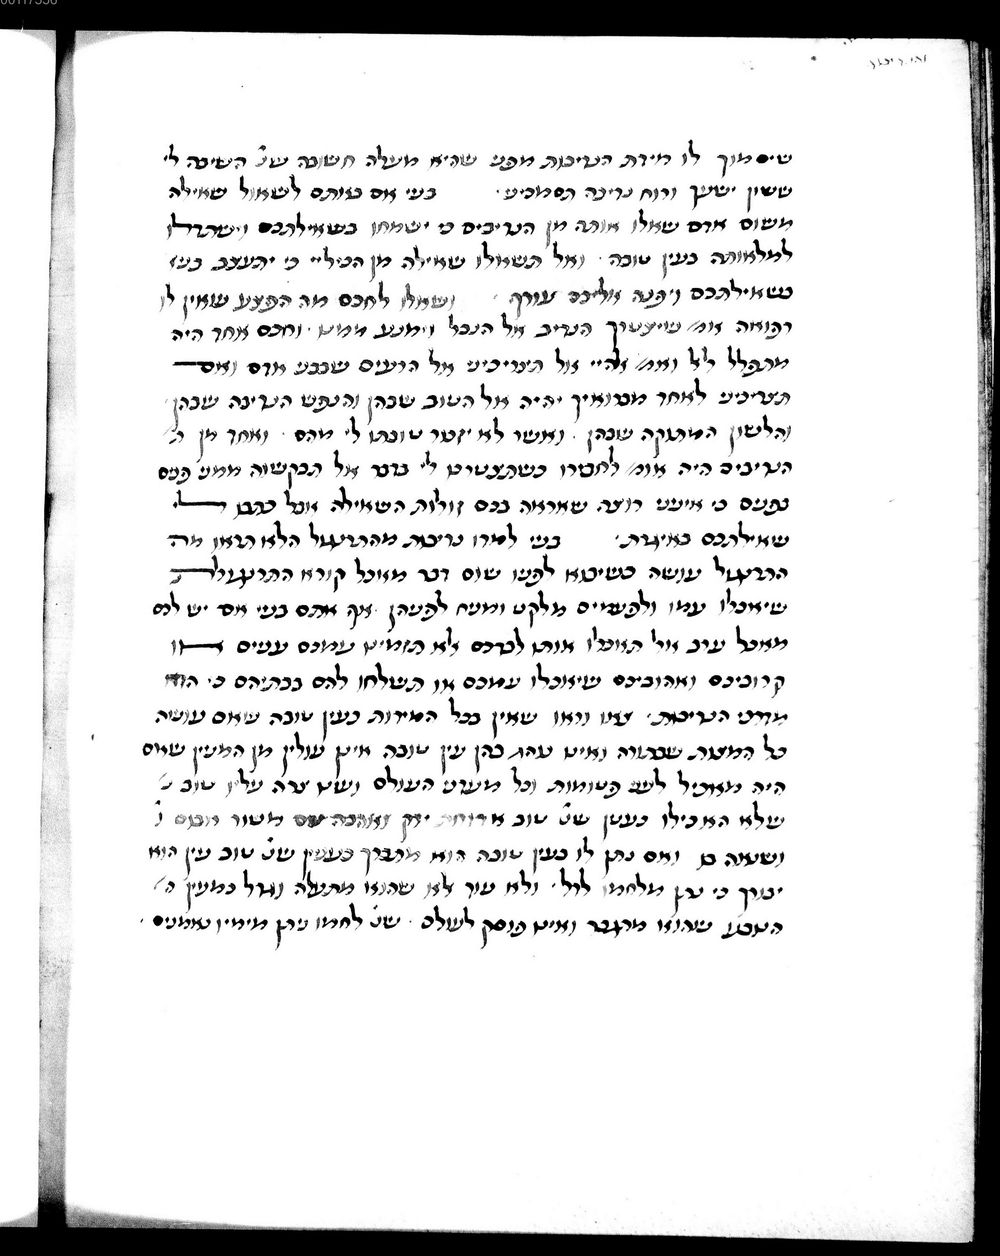 שיסמוך לו מידת הנדיבות מפני שהיא מעלה חשובה שנ' השיבה לי
ששון ישעך ורוח נדיבה תסמכיני בני אם באתם לשאול שאילה
משום אדם שאלו אותה מן הנדיבים כי ישמחו בשאילתכם וישתדלו
למלאותה בעין טובה ואל תשאלו שאילה מן הכיליי כי יתעצב בעת
בשאילתכם ויפנה אליכם עורף ושאלו לחכם מה הפצע שאין לו
רפואה אמ' שיצטרך הנדיב אל הנבל וימנע ממנו וחכם אחד היה
מתפלל לאל ואמ' אלהיי אל תצריכיני אל הרעים שבבני אדם ואם
תצריכיני לאחד מברואיך יהיה אל הטוב שבהן והנפש הנדיבה שבהן
והלשון המתוקה שבהן ואשר לא יזכור טובתו לי מהם ואחד מן
הנדיבים היה אומ' לחביריו כשתצטרכו לי בדבר אל תבקשוה ממני פנים
בפנים כי אינני רוצה שאראה בכם זולות השאילה אבל כתבו לי
שאילתכם באיגרת בני למדו נדיבות מהתרנגול הלא תראו מה
התרנגול עושה כשימצא לפניו שום דבר מאכל קורא התרנגולת
שיאכלו עמו ולפעמים מלקט ומניח לפניהן אף אתם בני אם יש לכם
מאכל ערב אל תאכלו אותו לבדכם אלא תזמינו עמכם עניים או
קרוביכם ואהוביכם שיאכלו עמכם או תשלחו להם בבתיהם כי הוא
מדרכי הנדיבות צאו וראו שאין בכל המידות כעין טובה שאם עושה
כל המצות שבתורה ואינו נוהג בהן עין טובה אינן עולין מן המנין שאם
היה מאכיל לעני פטומות וכל מעדני העולם ונותן צרה עליו טוב
שלא האכילו כענין שנ' טוב ארוחת ירק ואהבה שם משור אבוס
ושנאה בו ואם נתן לו בעין טובה הוא מתברך כענין שנ' טוב עין הוא
יבורך כי נתן מלחמו לדל ולא עוד אלא שהוא מתעלה וגדל כמעין
הנובע שהוא מתגבר ואינו פוסק לעולם שנ' לחמו ניתן מימיו נאמנים